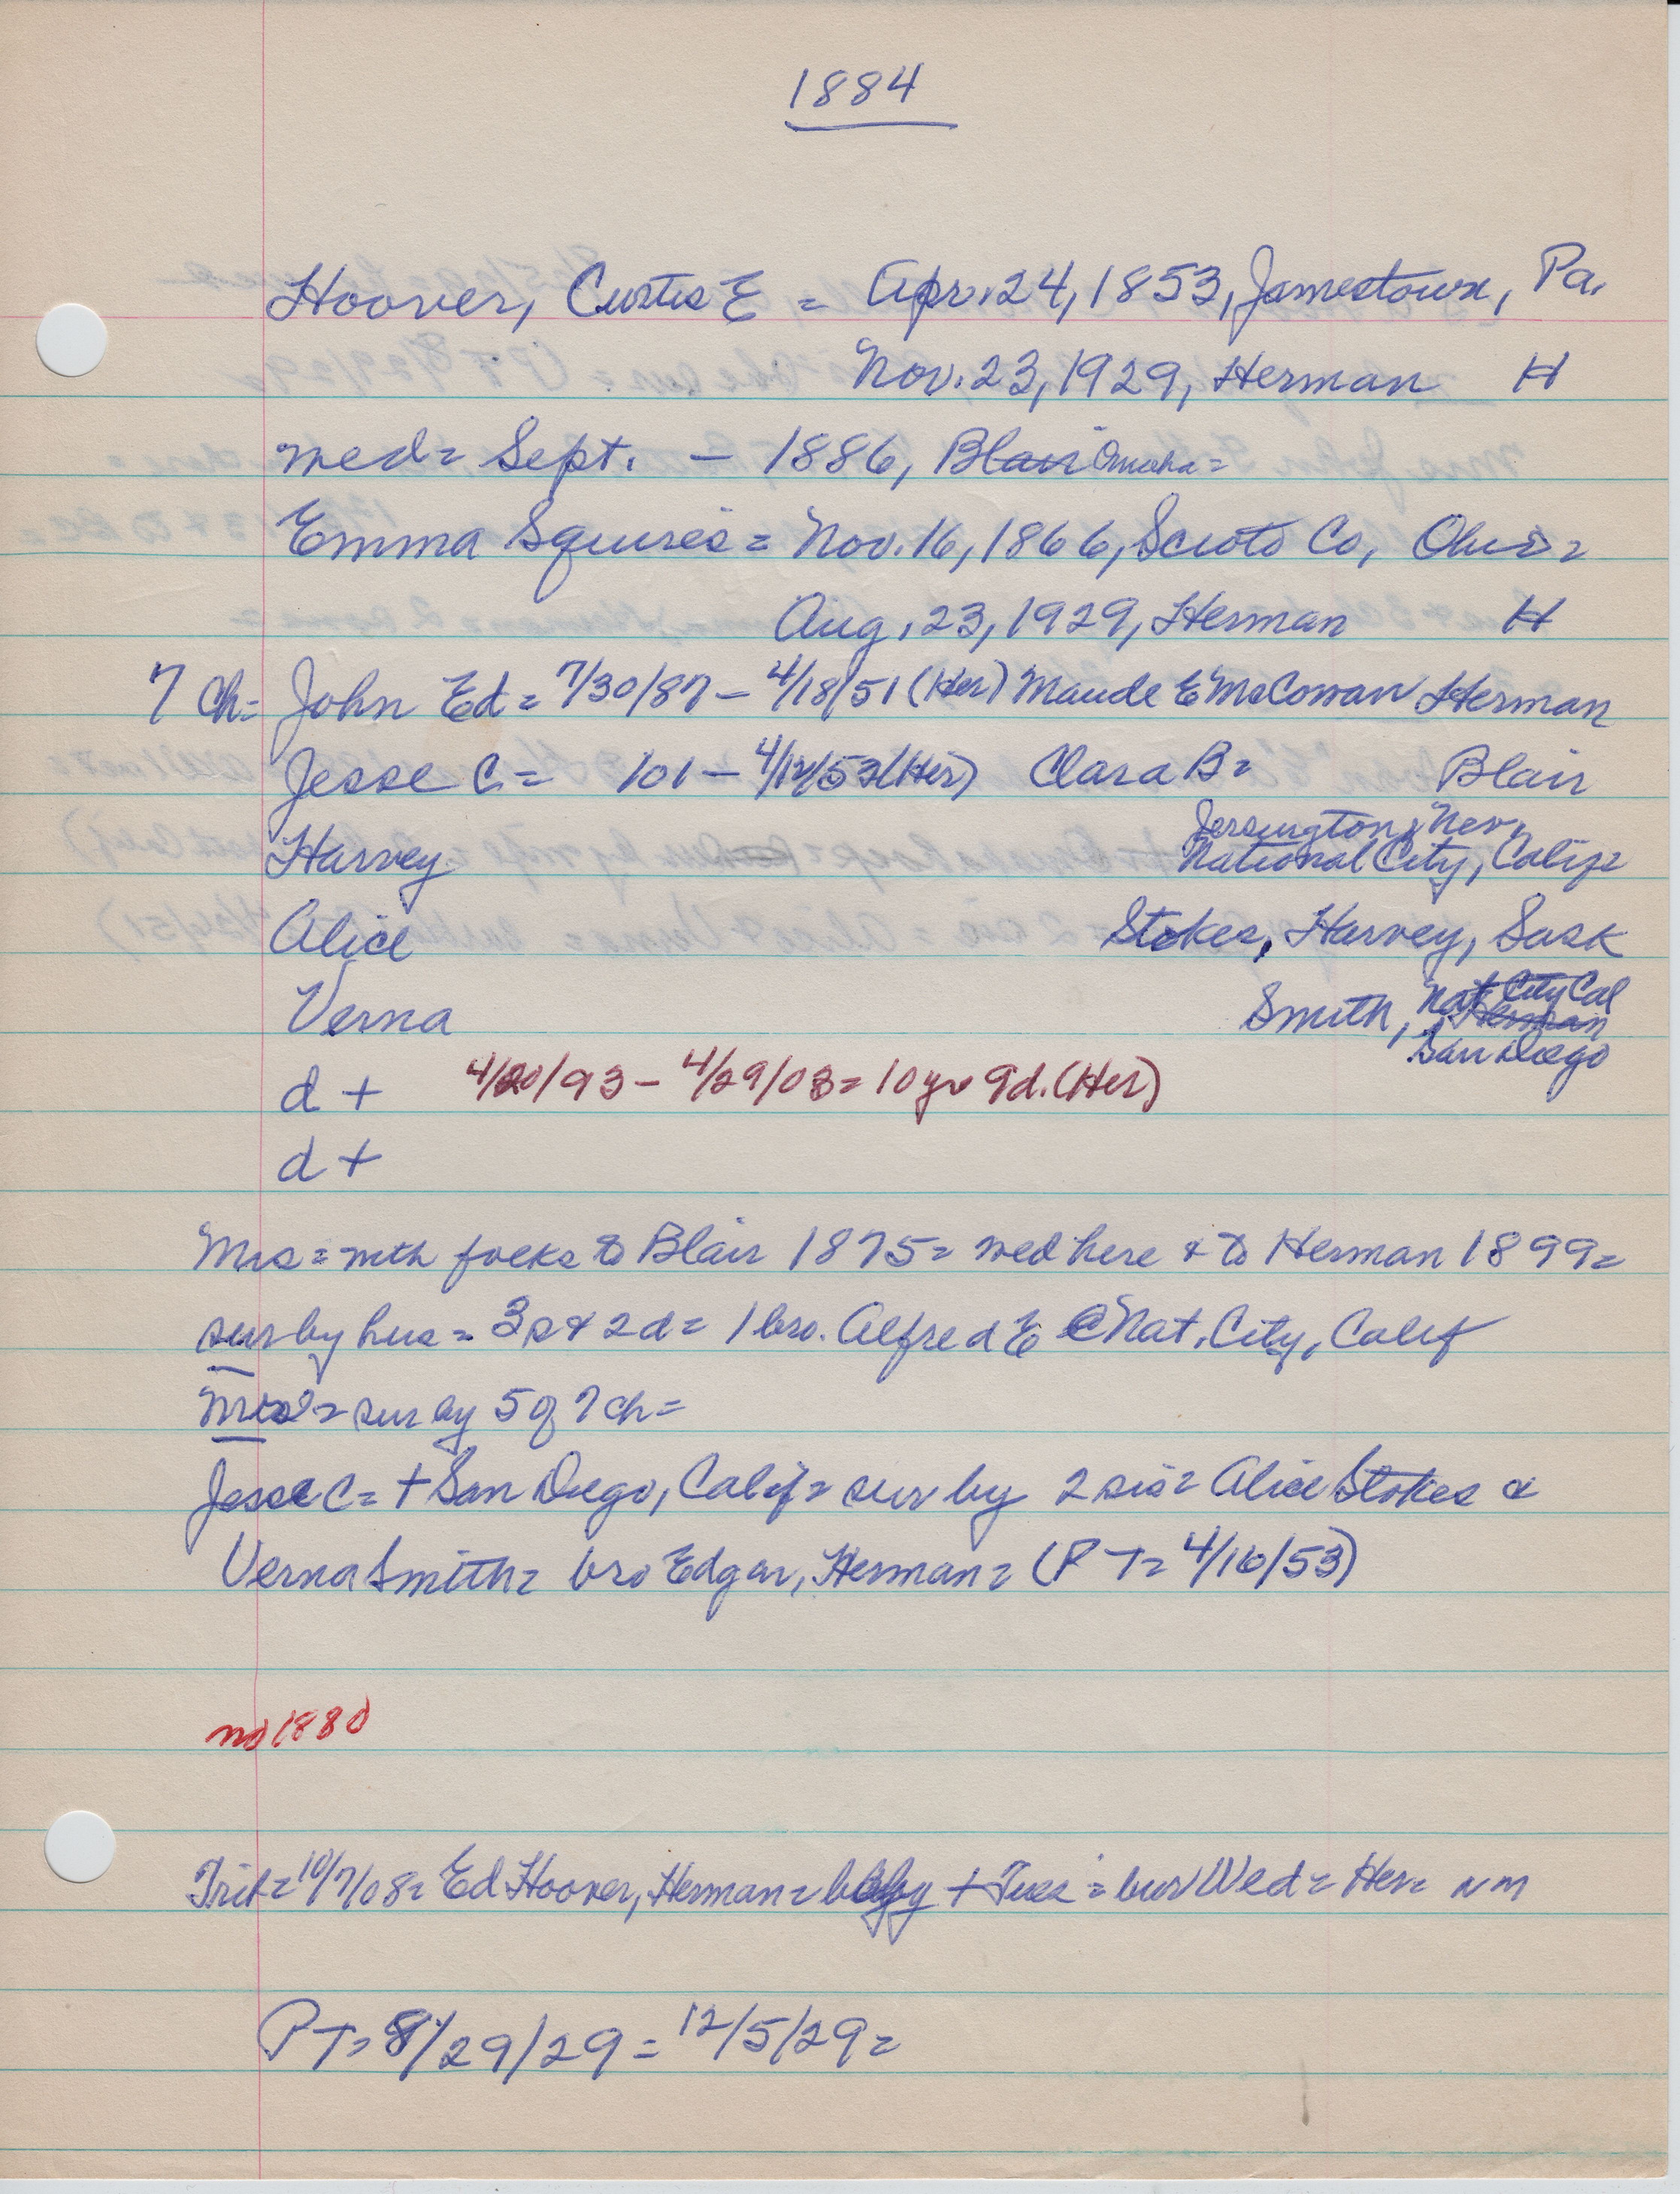 1884
Hoover, Curtis E = Apr. 24, 1853, Jamestown, Pa.
Nov. 23, 1929, Herman H
med = Sept. - 1886, Blair Omaha =
Emma Squires = Nov. 16, 1866, Scioto Co, Ohio =
Aug. 23, 1929, Herman H
7 ch = John Ed = 7/30/87 - 4/18/51 (Her) Maude E McCowan Herman
Jesse C = 101 - 4/12/53 (Her) Clara B = Blair
Harvey Nev.
National City, Calif =
Alice Stokes, Harvey, Sask
Verna Smith, Nat City Cal
Herman
San Diego
d + 4/20/93 - 4/29/03 = 10 yr 9d. (Her)
d +
Mrs = with folks to Blair 1875 = wed here & to Herman 1899 =
sur by hus = 3s & 2d = 1 bro. Alfred E @ Nat. City, Calif
= sur by 5 of 7 ch =
Jesse C = + San Diego, Calif = sur by 2 sis = Alice Stokes &
Verna Smith = bro Edgar, Herman = (P T = 4/16/53)
no 1880
Trib = 10/7/08 = Ed Hoover, Herman = baby + Tues = bur Wed = Her = nm
PT = 8/29/29 = 12/5/29 =